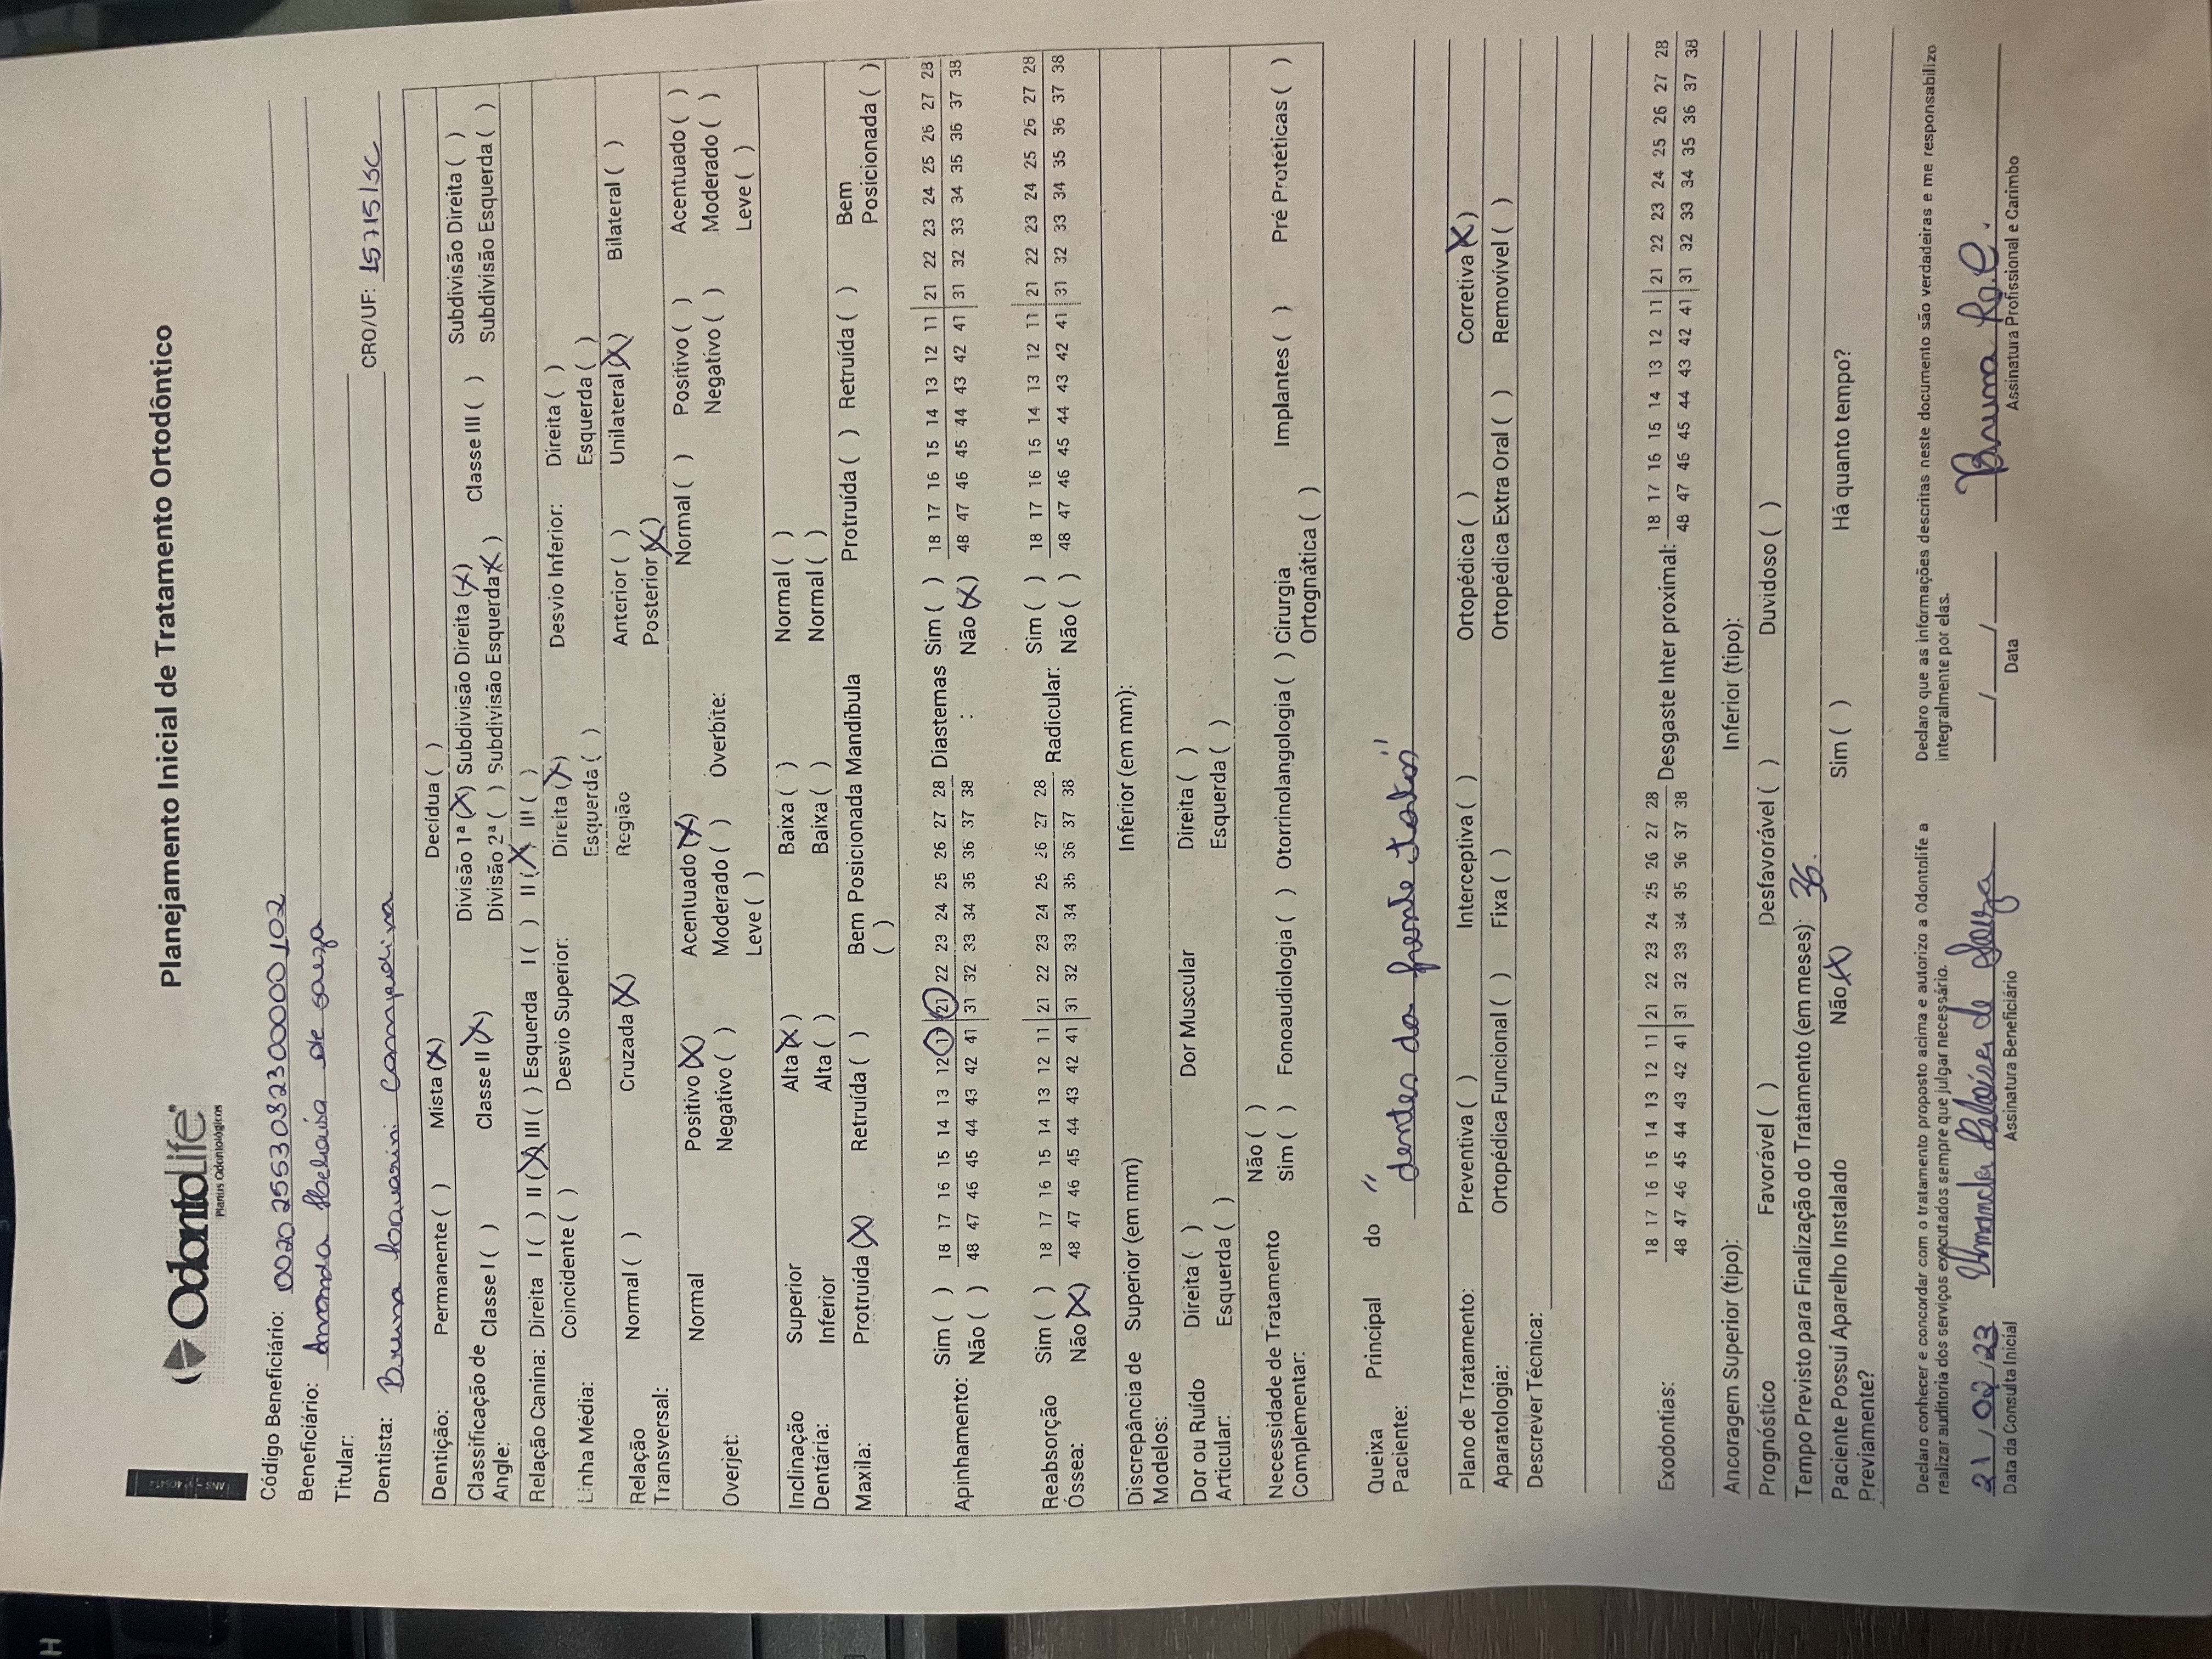 OdontoLife
Planos Odontológicos
Planejamento Inicial de Tratamento Ortodôntico
Código Beneficiário: 0020 2553032300000102
Beneficiário: Amanda Heloisa de Souza
Titular:
Dentista: Bruna CRO/UF: 15715/SC
Dentição: Permanente ( ) Mista (X) Decídua ( )
Classificação de Angle: Classe I ( ) Classe II (X) Divisão 1ª (X) Subdivisão Direita (X) Classe III ( ) Subdivisão Direita ( )
Divisão 2ª ( ) Subdivisão Esquerda (X) Subdivisão Esquerda ( )
Relação Canina: Direita I ( ) II (X) III ( ) Esquerda I ( ) II (X) III ( )
Linha Média: Coincidente ( ) Desvio Superior: Direita (X) Desvio Inferior: Direita ( )
Esquerda ( ) Esquerda ( )
Relação Transversal: Normal ( ) Cruzada (X) Região Anterior ( ) Unilateral (X) Bilateral ( )
Posterior (X)
Overjet: Normal Positivo (X) Acentuado (X) Overbite: Normal ( ) Positivo ( ) Acentuado ( )
Negativo ( ) Moderado ( ) Negativo ( ) Moderado ( )
Leve ( ) Leve ( )
Inclinação Dentária: Superior Alta (X) Baixa ( ) Normal ( )
Inferior Alta ( ) Baixa ( ) Normal ( )
Maxila: Protruída (X) Retruída ( ) Bem Posicionada ( ) Mandíbula Protruída ( ) Retruída ( ) Bem Posicionada ( )
Apinhamento: Sim ( ) 18 17 16 15 14 13 12 11 21 22 23 24 25 26 27 28 Diastemas: Sim ( ) 18 17 16 15 14 13 12 11 21 22 23 24 25 26 27 28
Não ( ) 48 47 46 45 44 43 42 41 31 32 33 34 35 36 37 38 Não (X) 48 47 46 45 44 43 42 41 31 32 33 34 35 36 37 38
Reabsorção Óssea: Sim ( ) 18 17 16 15 14 13 12 11 21 22 23 24 25 26 27 28 Radicular: Sim ( ) 18 17 16 15 14 13 12 11 21 22 23 24 25 26 27 28
Não (X) 48 47 46 45 44 43 42 41 31 32 33 34 35 36 37 38 Não ( ) 48 47 46 45 44 43 42 41 31 32 33 34 35 36 37 38
Discrepância de Modelos: Superior (em mm) Inferior (em mm):
Dor ou Ruído Articular: Direita ( ) Dor Muscular Direita ( )
Esquerda ( ) Esquerda ( )
Necessidade de Tratamento Complementar: Não ( )
Sim ( ) Fonoaudiologia ( ) Otorrinolangologia ( ) Cirurgia Ortognática ( ) Implantes ( ) Pré Protéticas ( )
Queixa Principal do Paciente: "dentes da frente tortos"
Plano de Tratamento: Preventiva ( ) Interceptiva ( ) Ortopédica ( ) Corretiva (X)
Aparatologia: Ortopédica Funcional ( ) Fixa ( ) Ortopédica Extra Oral ( ) Removível ( )
Descrever Técnica:
Exodontias: 18 17 16 15 14 13 12 11 21 22 23 24 25 26 27 28 Desgaste Inter proximal: 18 17 16 15 14 13 12 11 21 22 23 24 25 26 27 28
48 47 46 45 44 43 42 41 31 32 33 34 35 36 37 38 48 47 46 45 44 43 42 41 31 32 33 34 35 36 37 38
Ancoragem Superior (tipo): Inferior (tipo):
Prognóstico Favorável ( ) Desfavorável ( ) Duvidoso ( )
Tempo Previsto para Finalização do Tratamento (em meses): 36.
Paciente Possui Aparelho Instalado Previamente? Não (X) Sim ( ) Há quanto tempo?
Declaro conhecer e concordar com o tratamento proposto acima e autorizo a Odontolife a
realizar auditoria dos serviços executados sempre que julgar necessário.
Declaro que as informações descritas neste documento são verdadeiras e me responsabilizo
integralmente por elas.
21/02/23 Amanda Heloisa de Souza / / Bruna
Data da Consulta Inicial Assinatura Beneficiário Data Assinatura Profissional e Carimbo
H